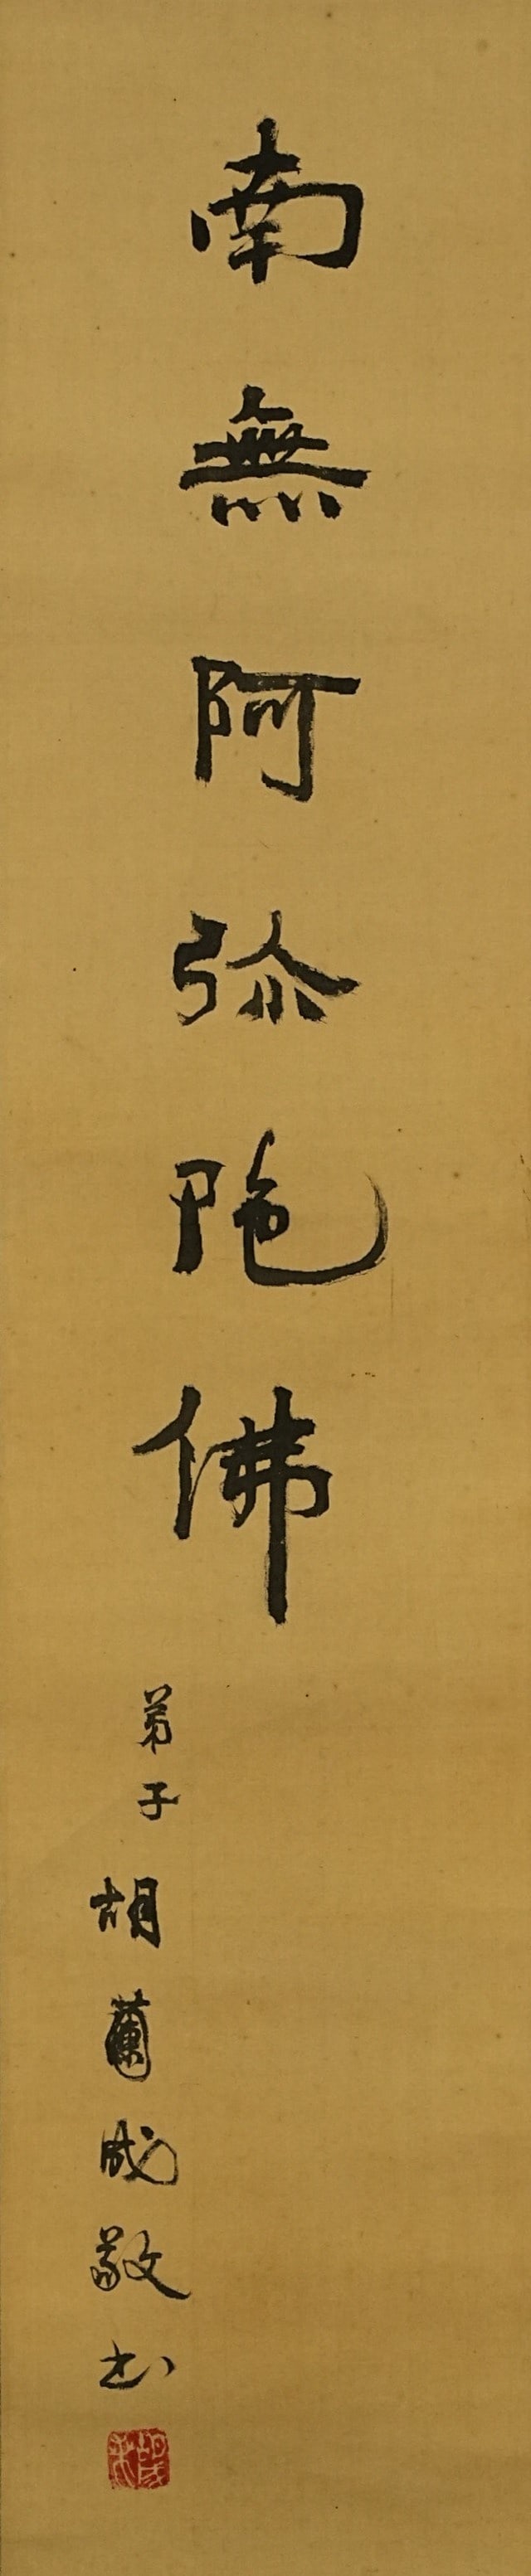 南無阿弥陀佛
弟子胡蘭成敬书